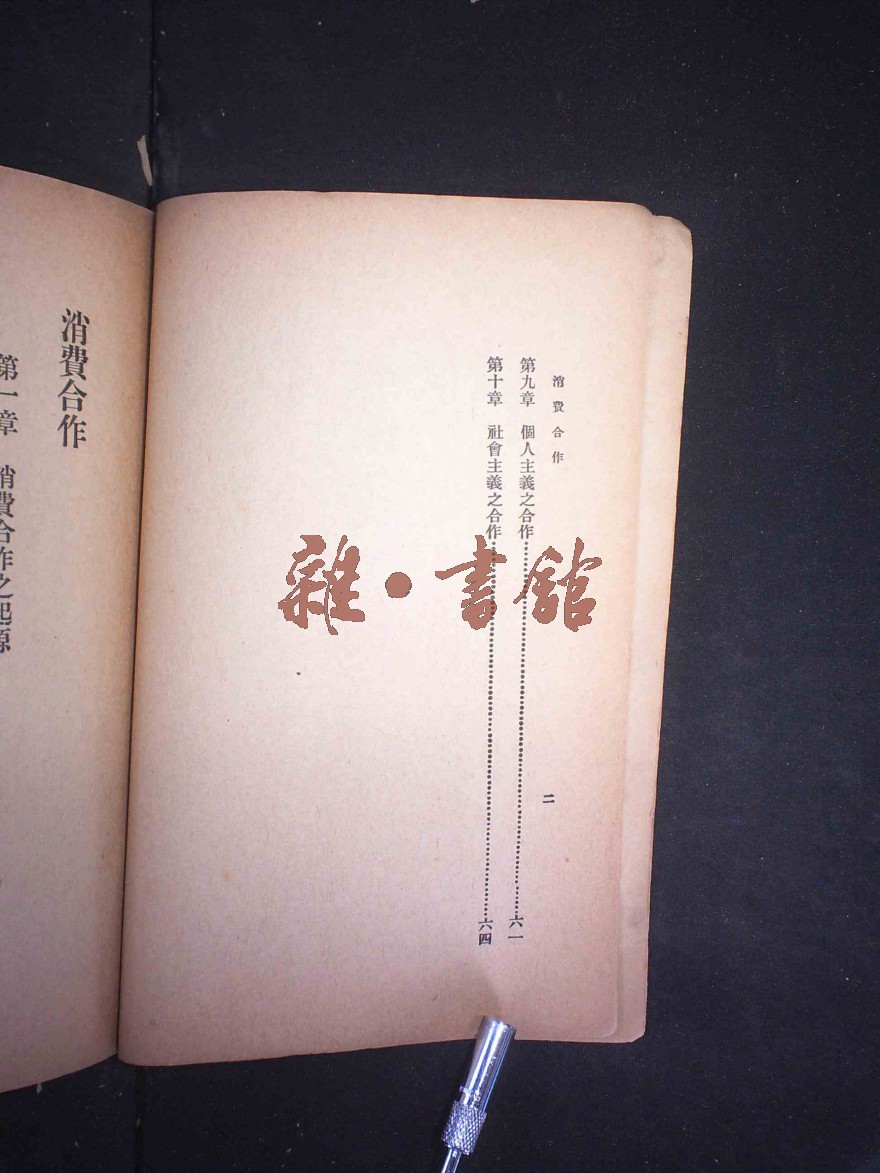 消費合作
第九章　個人主義之合作……六一
第十章　社會主義之合作……六四
二
雜·書館
消費合作
第一章　消費合作之起源